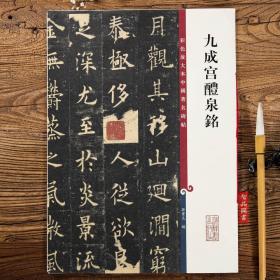 彩色放大本中國著名碑帖
九成宮醴泉銘
孫寶文 編
觀其移山迴澗窮
泰極侈
人從欲良
足深尤至於炎景流
金無鬱蒸之氣微